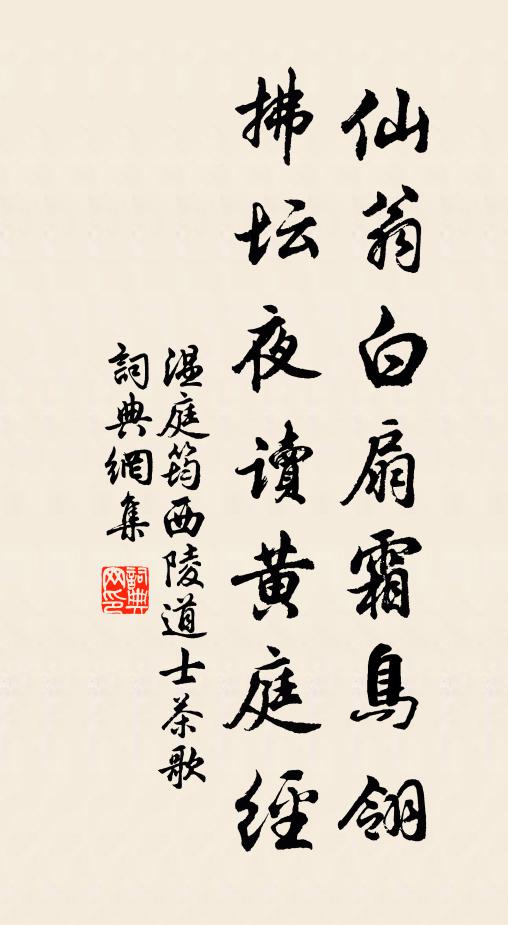 仙翁白扇霜鳥翎
拂坛夜读黄庭經
温庭筠西陵道士茶歌
詞典網集
詞典网印